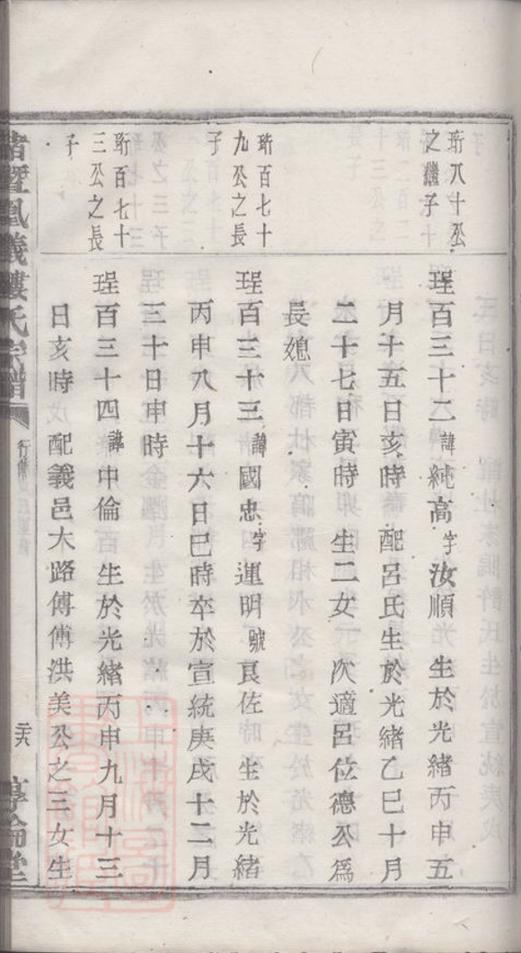 珩八十公
之繼子
珵百三十二諱純高字汝順 生於光緒丙申五
月十五日亥時 配呂氏生於光緒乙巳十月
二十七日寅時 生二女 次適呂位德公爲
長媳
珩百七十
九公之長
子
珵百三十三諱國忠字運明號良佐 生於光緒
丙申八月十六日巳時卒於宣統庚戌十二月
三十日申時
珩百七十
三公之長
子
珵百三十四諱中倫 生於光緒丙申九月十三
日亥時 配義邑大路傅傅洪美公之三女生
諸暨鳳儀樓氏宗譜
行傳
二六
惇倫堂